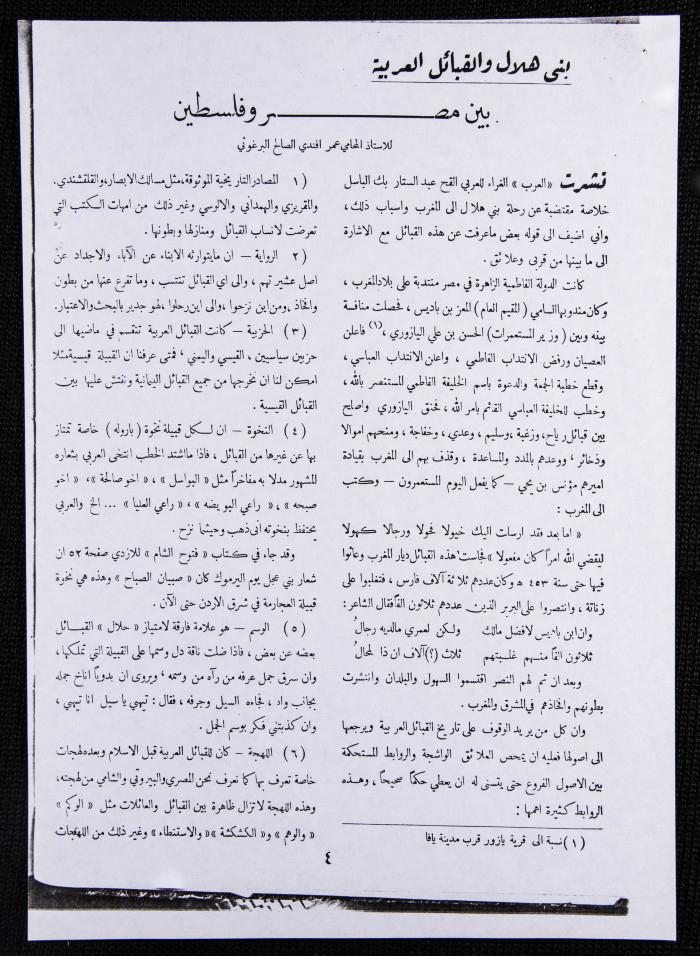 بنى هلال والقبائل العربية
بين مصر وفلسطين
للاستاذ المحامي عمر افندي الصالح البرغوثي
نشرت «العرب» الغراء للعربي القح عبد الستار بك الباسل
خلاصة مقتضبة عن رحلة بني هلال الى المغرب واسباب ذلك،
واني اضيف الى قوله بعض ماعرفت عن هذه القبائل مع الاشارة
الى ما بينها من قربى وعلائق.
كانت الدولة الفاطمية الزاهرة في مصر منتدبة على بلاد المغرب،
وكان مندوبها السامي (المقيم العام) المعز بن باديس، فحصلت منافسة
بينه وبين (وزير المستعمرات) الحسن بن علي اليازوري،(١) فاعلن
العصيان ورفض الانتداب الفاطمي، واعلن الانتداب العباسي،
وقطع خطبة الجمعة والدعوة باسم الخليفة الفاطمي المستنصر بالله،
وخطب للخليفة العباسي القائم بامر الله، فحنق اليازوري واصلح
بين قبائل رياح، وزغبة، وسليم، وعدي، وخفاجة، ومنحهم اموالا
وذخائر، ووعدهم بالمدد والمساعدة، وقذف بهم الى المغرب بقيادة
اميرهم مؤنس بن يحي — كما يفعل اليوم المستعمرون — وكتب
الى المغرب:
« اما بعد فقد ارسلت اليك خيولا فحولا ورجالا كهولا
ليقضي الله امراً كان مفعولا » فجاست هذه القبائل ديار المغرب وعاثوا
فيها حتى سنة ٤٥٣ ﻫ وكان عددهم ثلاثة آلاف فارس، فتغلبوا على
زناتة، وانتصروا على البربر الذين عددهم ثلاثون الفاً فقال الشاعر:
وان ابن باديس لافضل مالك ولكن لعمري مالديه رجالُ
ثلاثون الفاً منهم غلبتهم ثلاث (؟) آلاف ان ذا لمحالُ
وبعد ان تم لهم النصر اقتسموا السهول والبلدان وانتشرت
بطونهم وافخاذهم في المشرق والمغرب.
وان كل من يريد الوقوف على تاريخ القبائل العربية ويرجعها
الى اصولها فعليه ان يمحص العلائق الواشجة والروابط المستحكة
بين الاصول الفروع حتى يتسنى له ان يعطي حكماً صحيحاً، وهذه
الروابط كثيرة اهمها:
(١) نسبة الى قرية يازور قرب مدينة يافا
(١ المصادر التاريخية الموثوقة، مثل مسالك الابصار، والقلقشندي.
والمقريزي والهمداني والالوسي وغير ذلك من امهات الكتب التي
تعرضت لانساب القبائل ومنازلها وبطونها.
(٢ الرواية — ان مايتوارثه الابناء عن الآباء والاجداد عن
اصل عشيرتهم، والى اي القبائل تنتسب، وما تفرع عنها من بطون
وافخاذ، ومن اين نزحوا، والى اين رحلوا، لهو جدير بالبحث والاعتبار.
(٣) الحزبية — كانت القبائل العربية تنقسم في ماضيها الى
حزبين سياسيين، القيسي واليمني، فمتى عرفنا ان القبيلة قيسية مثلا
امكن لنا ان نخرجها من جميع القبائل اليمانية ونفتش عليها بين
القبائل القيسية.
(٤) النخوة — ان لكل قبيلة نخوة (باروله) خاصة تمتاز
بها عن غيرها من القبائل، فاذا مااشتد الخطب انتخى العربي بشعاره
المشهور مدلا به مفاخراً مثل « اليواسل »، « اخو صالحة »، « اخو
صبحه »، « راعي البويضه »، « راعي العليا » ... الخ والعربي
يحتفظ بنخوته انى ذهب وحيثما نزح.
وقد جاء في كتاب « فتوح الشام » للازدي صفحة ٥٢ ان
شعار بني عجل يوم اليرموك كان « صبيان الصباح » وهذه هي نخوة
قبيلة العجارمة في شرق الاردن حتى الآن.
(٥) الوسم — هو علامة فارقة لامتياز « حلال » القبائل
بعضه عن بعض، فاذا ضلت ناقة دل وسمها على القبيلة التي تملكها،
وان سرق جمل عرفه من رآه من وسمه، ويروى ان بدوياً اناخ جمله
بجانب واد، فجاءه السيل وجرفه، فقال: تيهي ياسيل انا تيهي،
وان كذبتني فكر بوسم الجمل.
(٦) اللهجة — كان للقبائل العربية قبل الاسلام وبعده لهجات
خاصة تعرف بها كما نعرف نحن المصري والبيروتي والشامي من لهجته،
وهذه اللهجة لاتزال ظاهرة بين القبائل والعائلات مثل « الوكم »
« والوهم » و« الكشكشة » « والاستنطاء » وغير ذلك من اللهجات
٤